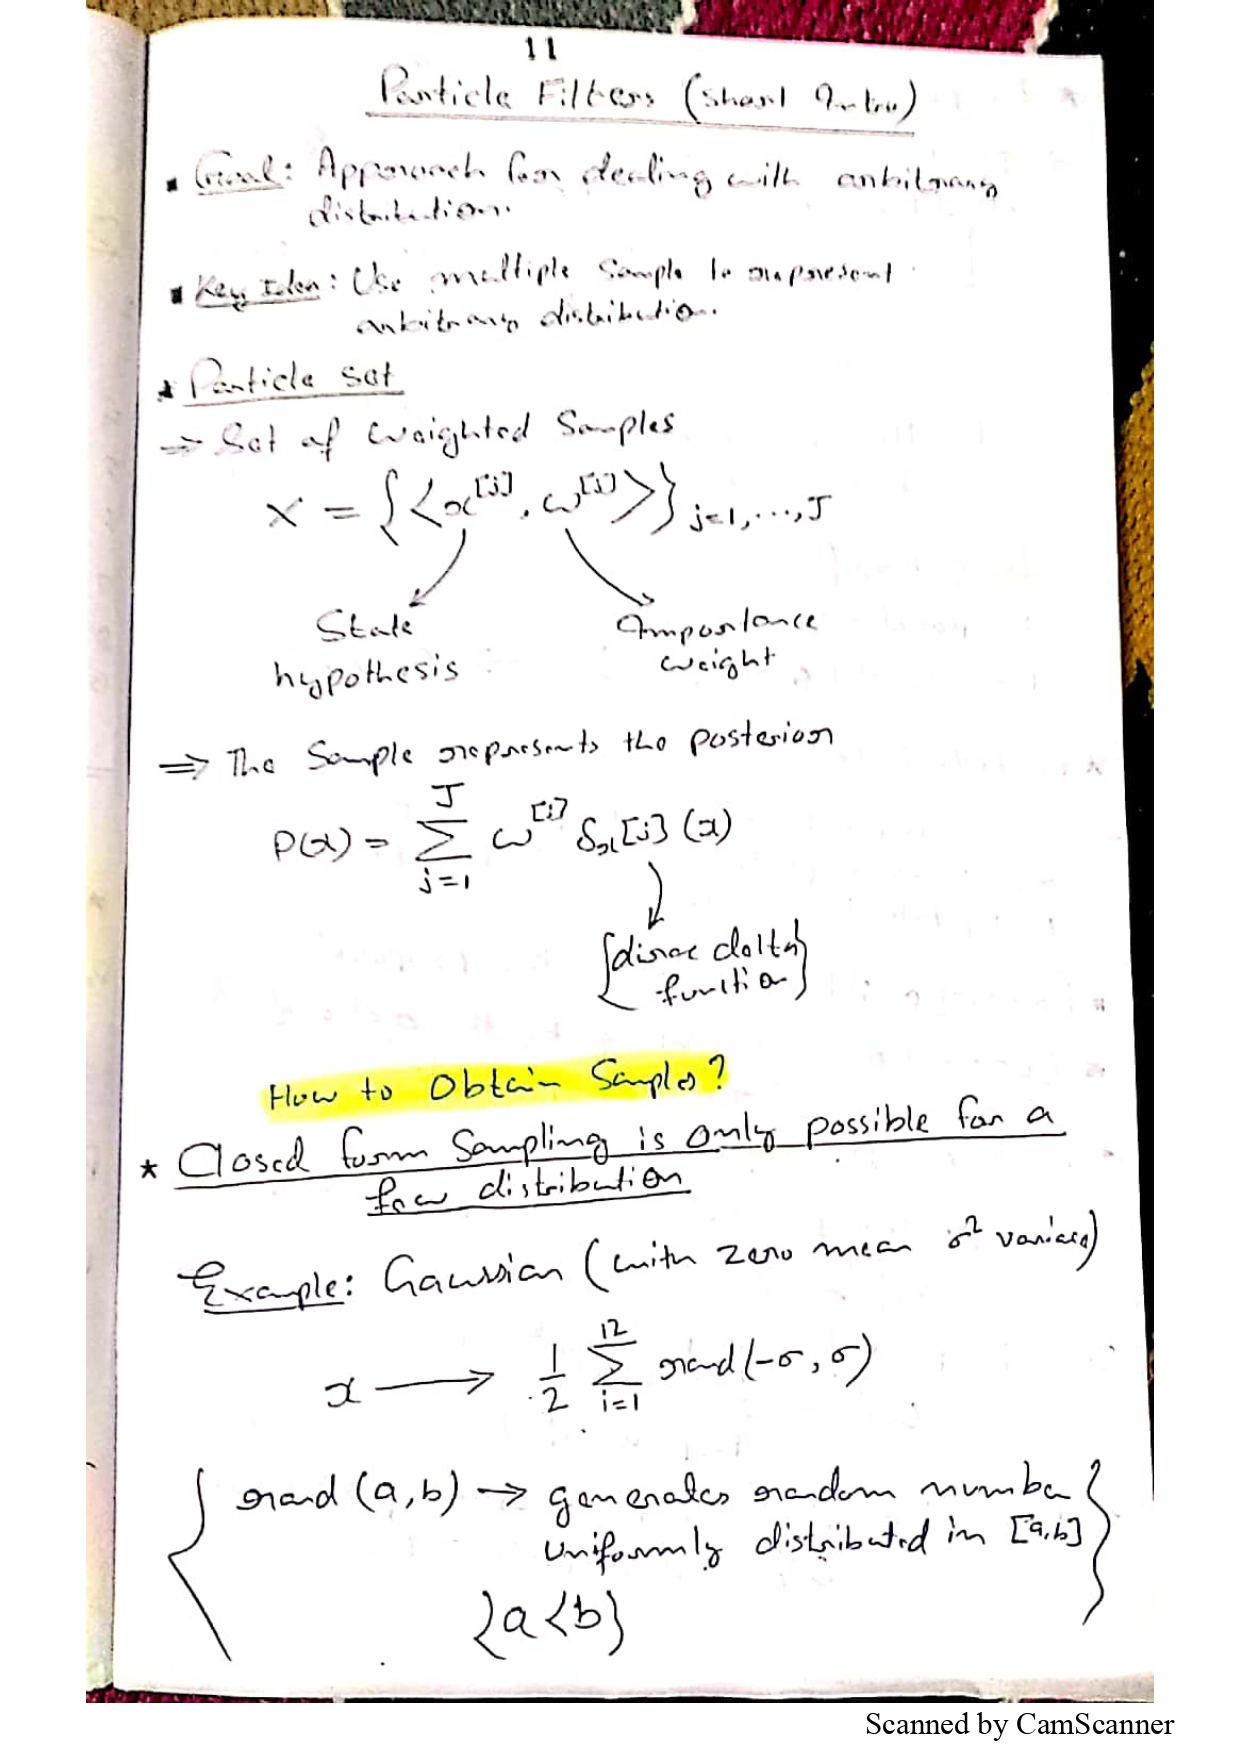 11
Particle Filters (Short Intro)
Goal: Approach for dealing with arbitrary
distribution.
Key Idea: Use multiple sample to represent
arbitrary distribution.
* Particle set
→ Set of weighted Samples
X = {<x^[j], ω^[j]>} j=1,...,J
State
hypothesis
Importance
weight
⇒ The Sample represents the posterior
P(x) = Σ_{j=1}^{J} ω^[j] δ_x[j] (x)
{dirac delta
function}
How to Obtain Samples?
* Closed form Sampling is only possible for a
few distribution
Example: Gaussian (with zero mean σ² variance)
x → 1/2 Σ_{i=1}^{12} rand(-σ, σ)
{ rand (a,b) → generates random number
uniformly distributed in [a,b] }
{a<b}
Scanned by CamScanner